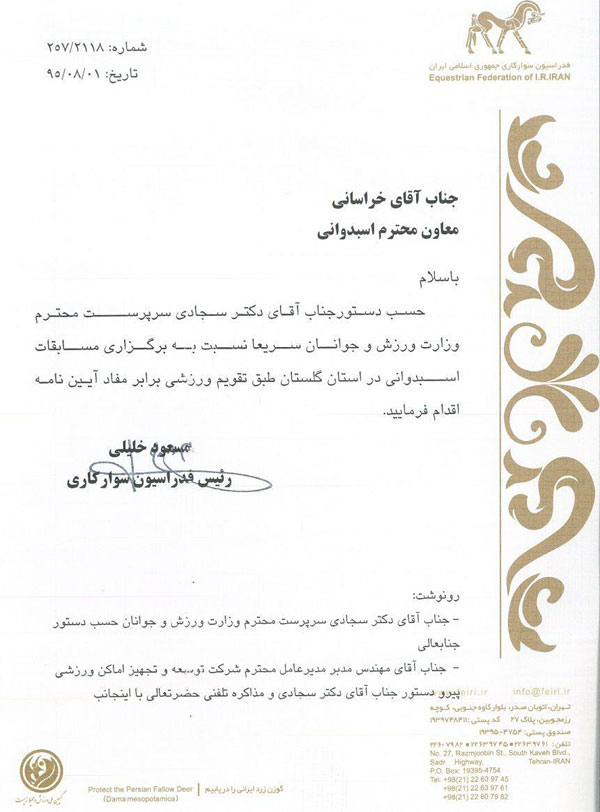 شماره: ۲۵۷/۲۱۱۸
تاریخ: ۹۵/۰۸/۰۱
فدراسیون سوارکاری جمهوری اسلامی ایران
Equestrian Federation of I.R.IRAN
جناب آقای خراسانی
معاون محترم اسبدوانی
باسلام
حسب دستورجناب آقای دکتر سجادی سرپرست محترم
وزارت ورزش و جوانان سریعا نسبت به برگزاری مسابقات
اسبدوانی در استان گلستان طبق تقویم ورزشی برابر مفاد آیین نامه
اقدام فرمایید.
مسعود خلیلی
رئیس فدراسیون سوارکاری
رونوشت:
- جناب آقای دکتر سجادی سرپرست محترم وزارت ورزش و جوانان حسب دستور
جنابعالی
- جناب آقای مهندس مدبر مدیرعامل محترم شرکت توسعه و تجهیز اماکن ورزشی
پیرو دستور جناب آقای دکتر سجادی و مذاکره تلفنی حضرتعالی با اینجانب
info@feiri.ir
تهران، اتوبان صدر، بلوار کاوه جنوبی، کوچه
رزمجویین، پلاک ۲۷ کد پستی: ۱۹۳۹۷۴۸۴۱۱
صندوق پستی: ۴۷۵۴-۱۹۳۹۵
تلفن: ۲۲۶۳۹۷۶۱ ■ ۲۲۶۳۹۷۴۵ ■ ۲۲۶۰۷۹۸۲
No. 27, Razmjoobin St., South Kaveh Blvd.,
Sadr Highway, Tehran-IRAN
P.O. Box: 19395-4754
Tel: +98(21) 22 63 97 45
+98(21) 22 63 97 61
+98(21) 22 60 79 82
Protect the Persian Fallow Deer
(Dama mesopotamica)
گوزن زرد ایرانی را دریابیم